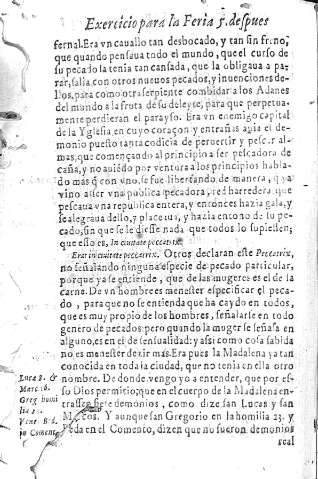 Exercicio para la Feria 5. despues
fernal. Era vn cauallo tan desbocado, y tan sin freno,
que quando pensaua todo el mundo, que el curso de
su pecado la tenia tan cansada, que la obligaua a pa-
rar, salia con otros nueuos pecados, y inuenciones de-
llos, para como otra serpiente combidar a los Adanes
del mundo a la fruta de su deleyte, para que perpetua-
mente perdieran el parayso. Era vn enemigo capital
de la Yglesia, en cuyo coraçon y entrañas auia el de-
monio puesto tanta codicia de peruertir y pescar al-
mas, que començando al principio a ser pescadora de
caña, y no auiẽdo por ventura a los principios habla-
do mas q̃ con vno, se fue libertando de manera, q̃ ya
vino a ser vna publica pecadora, y red barredera, que
pescaua vna republica entera, y entonces hazia gala, y
se alegraua dello, y placetas, y hazia entono de su pe-
cado, sin que se le diesse nada que todos lo supiessen;
que esso es, In ciuitate peccatrix.
Erat in ciuitate peccatrix. Otros declaran este Peccatrix,
no señalando ninguna especie de pecado particular,
porque ya se entiende, que de las mugeres es el de la
carne. De vn hombre es menester especificar el peca-
do, para que no se entienda que ha caydo en todos,
que es muy propio de los hombres, señalarse en todo
genero de pecados: pero quando la muger se señala en
alguno, es en el de sensualidad: y assi como cosa sabida
no es menester dezir mas. Era pues la Madalena ya tan
conocida en toda la ciudad, que no tenia en ella otro
nombre. De donde vengo yo a entender, que por es-
so Dios permitio, que en el cuerpo de la Madalena en-
trassen siete demonios, como dize san Lucas y san
Marcos. Y aunque san Gregorio en la homilia 23. y
Beda en el Comento, dizen que no fueron demonios
real
Luca 8. &
Marc. 16.
Greg homi
lia
Vene B d.
in Coment.